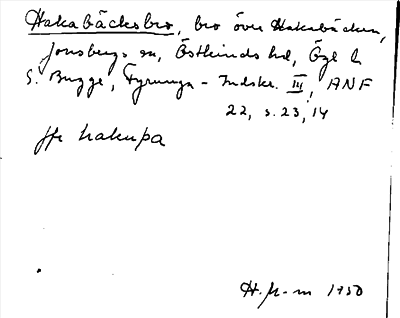 Hakabäcksbro, bro över Hakabäcken,
Jonsbergs sn, Östkinds hd, Ögl
S. Bugge, Fyrunga-Indskr. III, ANF
22, s. 23, 14
jfr hakuþa
H. 1950